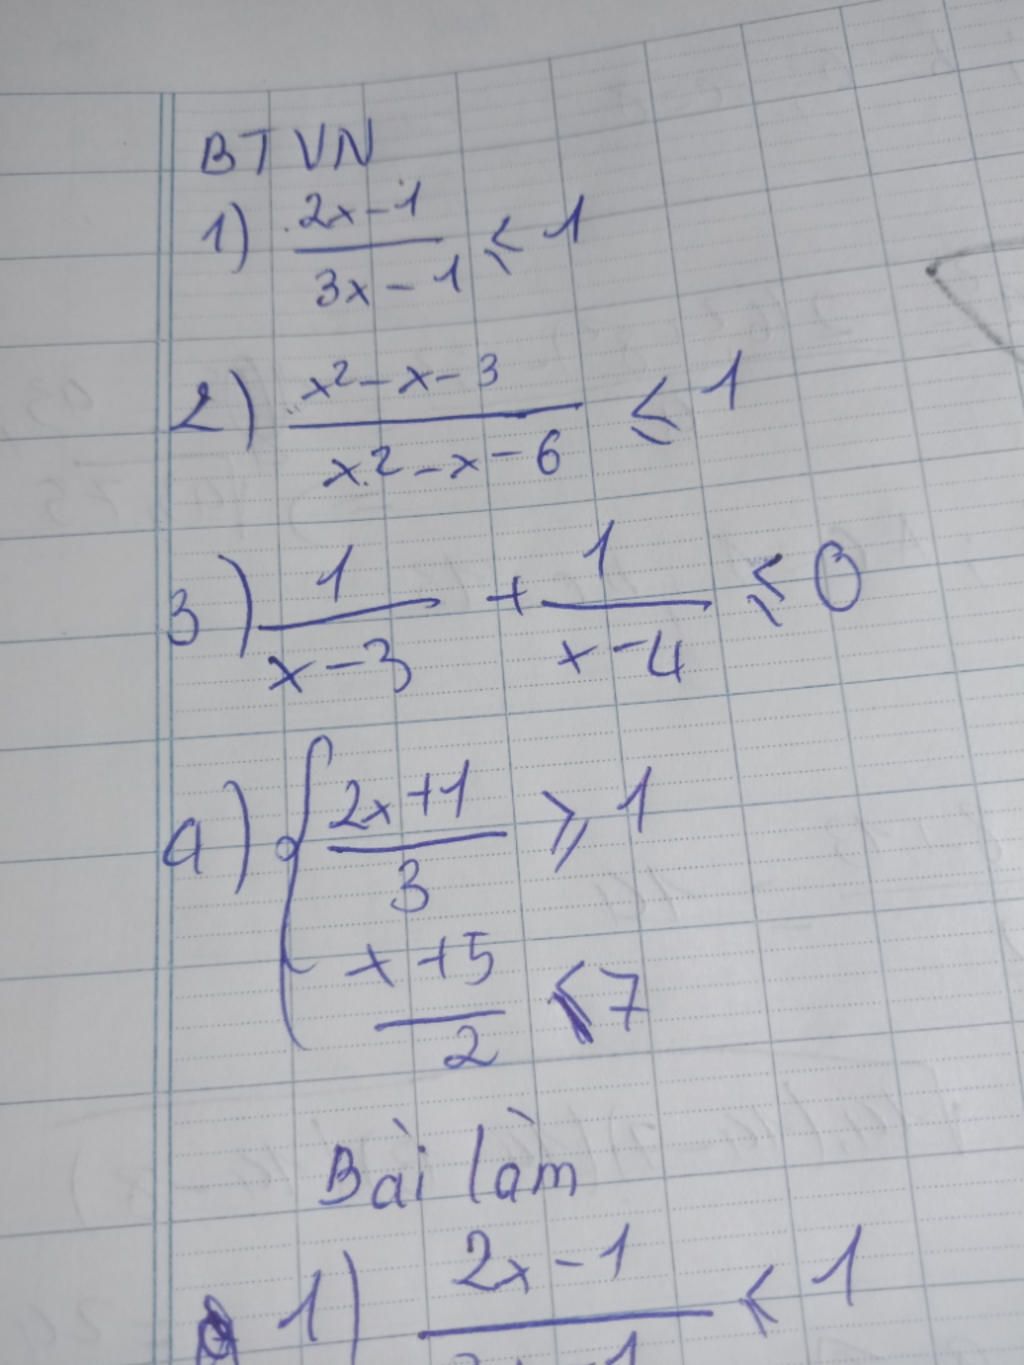 BTVN
1) 2x-1
3x-1 ≤ 1
2) x²-x-3
x²-x-6 ≤ 1
3) 1/x-3 + 1/x-4 ≤ 0
a) { 2x+1
3 ≥ 1
x+5
2 ≤ 7
Bài làm
1) 2x-1 ≤ 1